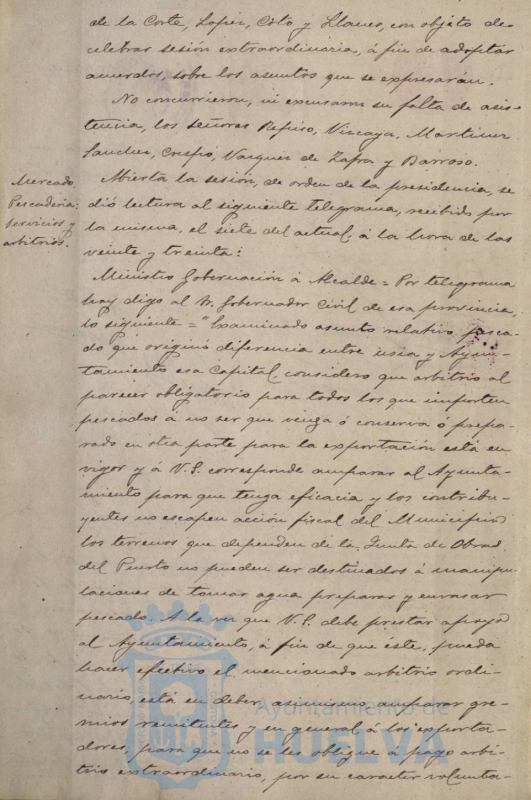 de la Corte, Lopez, Cóto y Llanes, con objeto de
celebrar sesión extraordinaria, á fin de adoptar
acuerdos, sobre los asuntos que se expresarán.
No concurrieron, ni excusaron su falta de asis-
tencia, los señores Refiso, Vizcaya, Martinez
Sanchez, Crespo, Vazquez de Zafra y Barroso.
Mercado
Pescaderia:
Servicios y
arbitrios.
Abierta la sesión, de orden de la presidencia, se
dió lectura al siguiente telegrama, recibido por
la misma, el siete del actual, á la hora de las
veinte y treinta:
Ministro Gobernación á Alcalde = Por telegrama
hoy digo al Sr. Gobernador Civil de esa provincia,
lo siguiente = "Examinado asunto relativo pesca-
do que originó diferencia entre usia y Ayun-
tamiento esa Capital, considero que arbitrio al
parecer obligatorio para todos los que importen
pescados á no ser que venga ó conserva ó prepa-
rado en otra parte para la exportación está en
vigor y á V.S. corresponde amparar al Ayunta-
miento para que tenga eficacia y los contribu-
yentes no escapen acción fiscal del Municipio
los terrenos que dependen de la Junta de Obras
del Puerto no pueden ser destinados á manipu-
laciones de tomar agua preparar y envasar
pescado. A la vez que V.S. debe prestar apoyo
al Ayuntamiento, á fin de que éste, pueda
hacer efectivo el mencionado arbitrio ordi-
nario, está en deber, asimismo, amparar gre-
mios remitentes y en general á los exporta-
dores, para que no se les obligue á pago arbi-
trio extraordinario, por su caracter volunta-
Ayuntamiento de
HUELVA